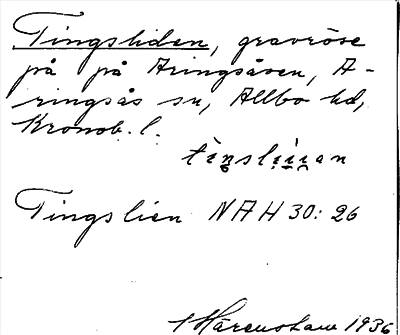 Tingsliden, gravröse
på på Aringsåsen, A-
ringsås sn, Allbo hd,
Kronob. l.
Tingslien NAH 30: 26
1936